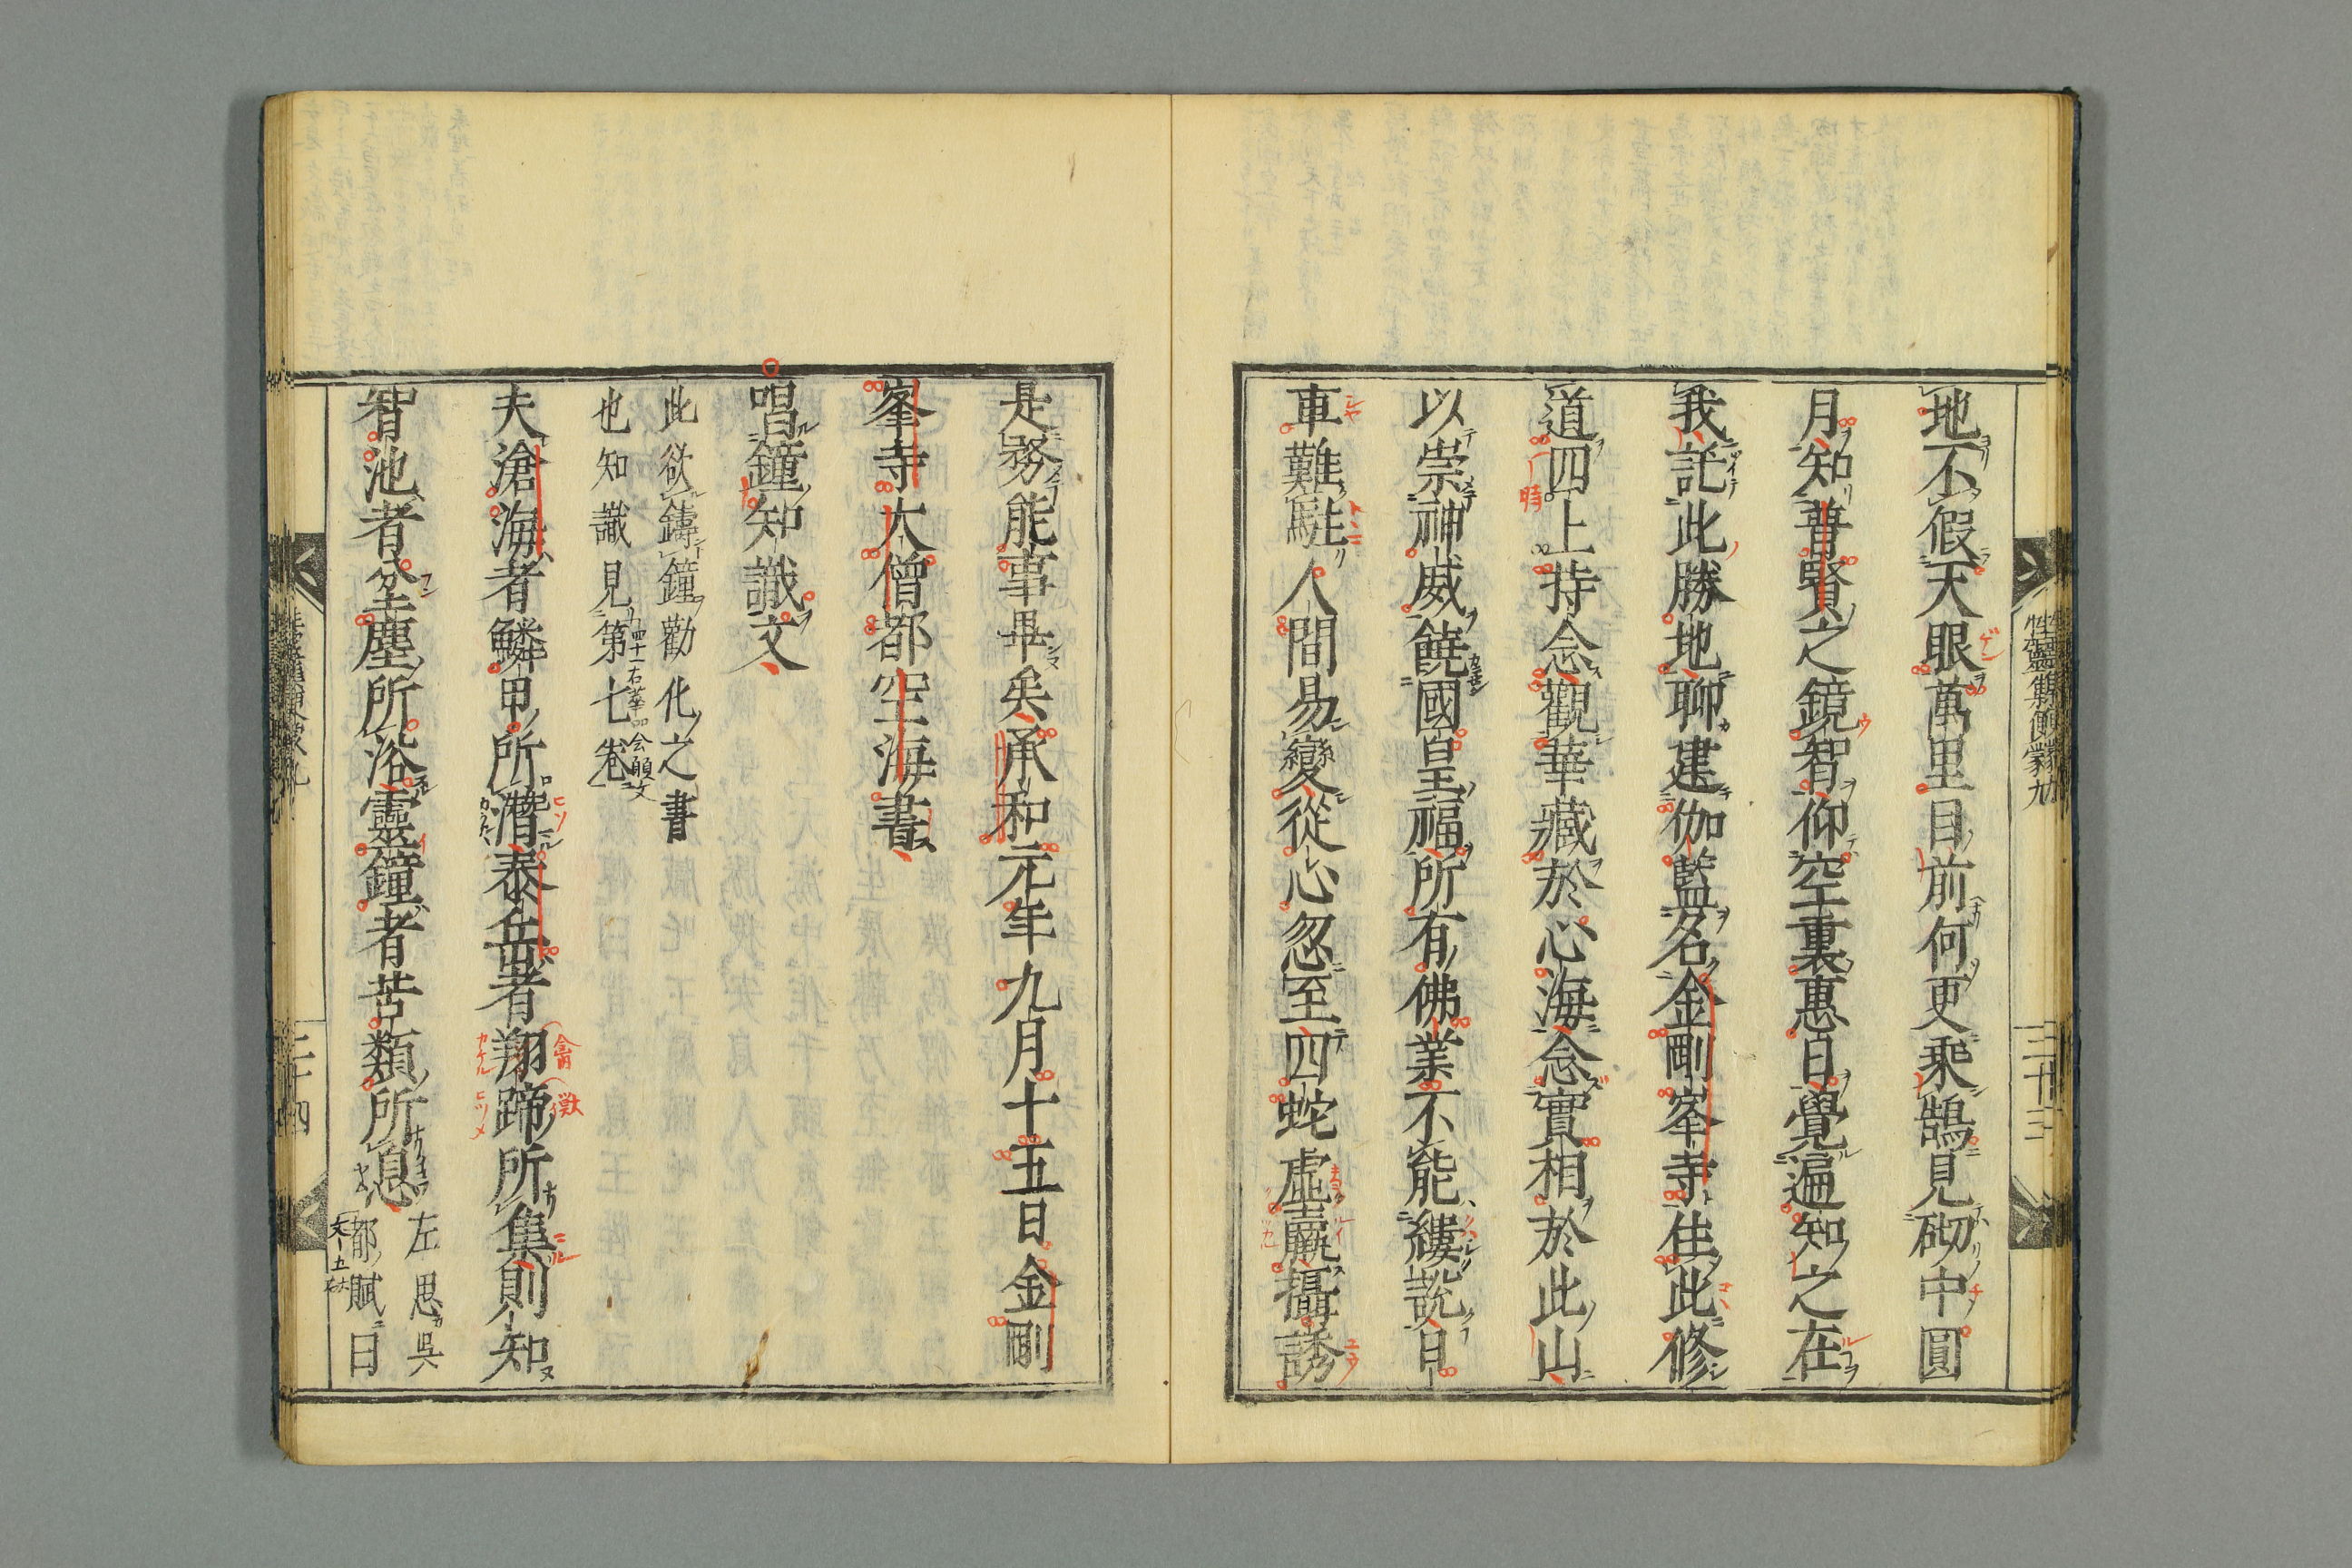 地不假天眼萬里目前何更乘鵠見砌中圓
月知普賢之鏡智仰空裏惠日覺遍知之在
我託此勝地聊建伽藍名金剛峯寺住此修
道四上持念觀華藏於心海念實相於此山
以崇神威饒國皇福所有佛業不能縷說日
車難駐人間易變從心忽至四蛇虛羸攝誘
是務能事畢矣承和元年九月十五日金剛
峯寺大僧都空海書
唱鐘知識文
此欲鑄鐘勸化之書
也知識見第七卷
夫滄海者鱗甲所潛泰岳者翔蹄所集則知
智池者坌塵所浴靈鐘者苦類所息
左思吳
都賦曰